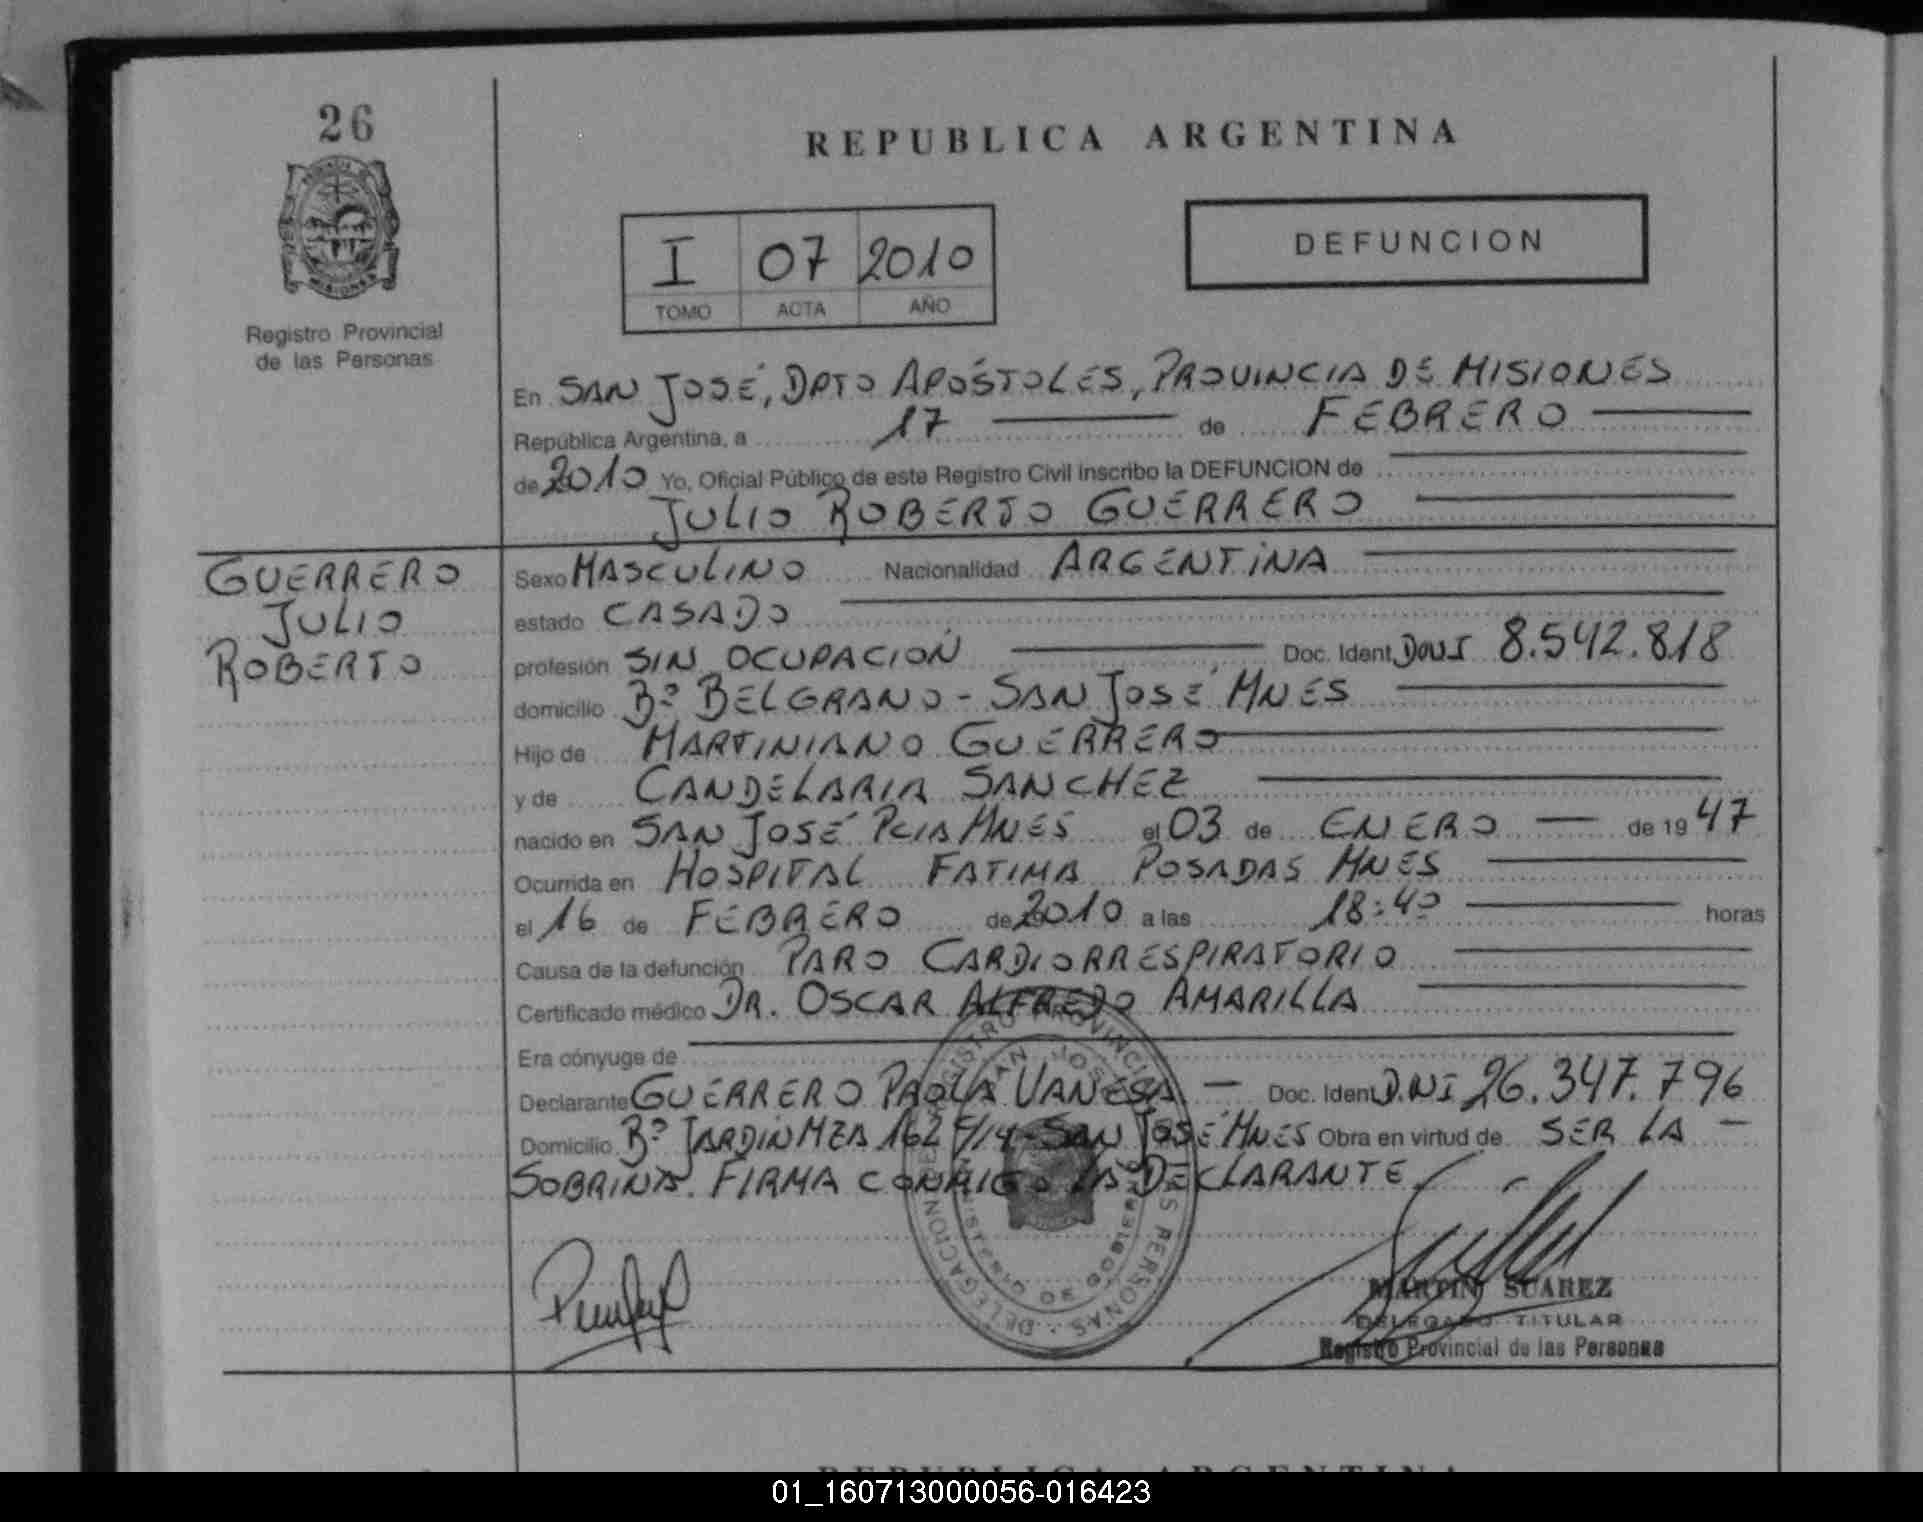 26
REPUBLICA ARGENTINA
I 07 2010
TOMO ACTA AÑO
DEFUNCION
Registro Provincial
de las Personas
En SAN JOSÉ, DPTO APÓSTOLES, PROVINCIA DE MISIONES
República Argentina, a 17 de FEBRERO
de 2010 Yo, Oficial Público de este Registro Civil inscribo la DEFUNCION de
JULIO ROBERTO GUERRERO
GUERRERO
JULIO
ROBERTO
Sexo MASCULINO Nacionalidad ARGENTINA
estado CASADO
profesión SIN OCUPACIÓN Doc. Ident. DNI 8.542.818
domicilio Bº BELGRANO - SAN JOSÉ MNES
Hijo de MARTINIANO GUERRERO
y de CANDELARIA SANCHEZ
nacido en SAN JOSÉ PCIA MNES el 03 de ENERO de 1947
Ocurrida en HOSPITAL FATIMA POSADAS MNES
el 16 de FEBRERO de 2010 a las 18:40 horas
Causa de la defunción PARO CARDIORRESPIRATORIO
Certificado médico DR. OSCAR ALFREDO AMARILLA
Era cónyuge de
Declarante GUERRERO PAOLA VANESA Doc. Ident. D.NI 26.347.796
Domicilio Bº JARDIN MZA 162 C/14 - SAN JOSÉ MNES Obra en virtud de SER LA
SOBRINA. FIRMA CONMIGO LA DECLARANTE.
DELEGACION REGISTRO PROVINCIAL DE LAS PERSONAS
SAN JOSE
MINISTERIO DE GOBIERNO
MARTIN SUAREZ
DELEGADO TITULAR
Registro Provincial de las Personas
REPUBLICA ARGENTINA
01_160713000056-016423